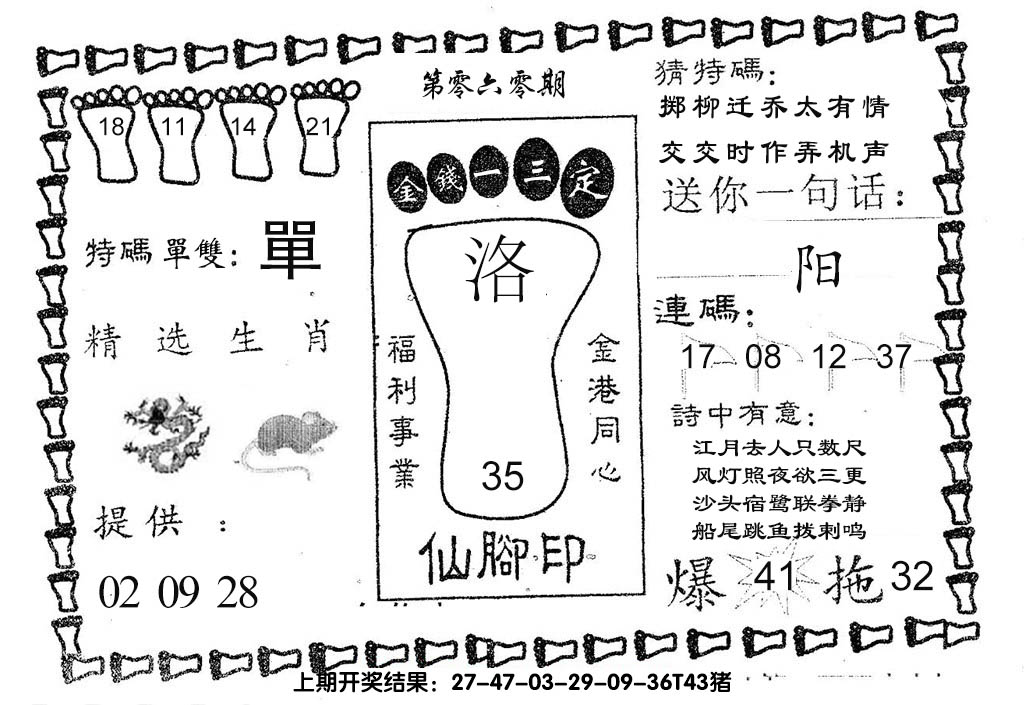 第零六零期
18 11 14 21
特碼單雙: 單
精选生肖
提供:
02 09 28
金錢一三定
洛
福利事業
金港同心
35
仙腳印
猜特碼:
掷柳迁乔太有情
交交时作弄机声
送你一句话:
阳
連碼:
17 08 12 37
詩中有意:
江月去人只数尺
风灯照夜欲三更
沙头宿鹭联拳静
船尾跳鱼拨刺鸣
爆 41 拖 32
上期开奖结果: 27-47-03-29-09-36T43猪